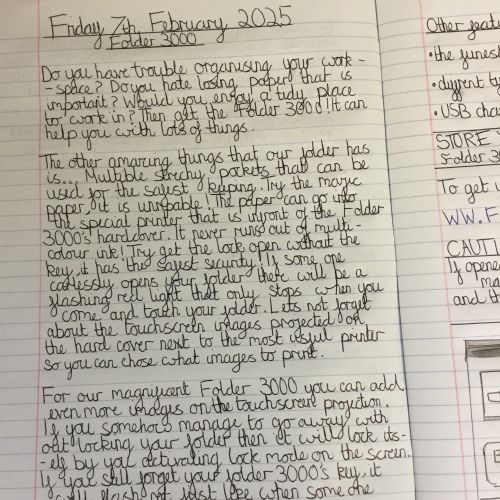 Friday 7th February 2025
Folder 3000
Do you have trouble organising your work-
-space? Do you hate losing paper that is
important? Would you enjoy a tidy place
to work in? Then get the Folder 3000! It can
help you with lots of things.
The other amazing things that our folder has
is... Multiple strechy pockets that can be
used for the safest keeping. Try the magic
paper, it is unripable! The paper can go into
the special printer that is infront of the Folder
3000's hardcover. It never runs out of multi-
colour ink! Try get the lock open without the
key, it has the safest security! If some one
carlessly opens your folder there will be a
flashing red light that only stops when you
come and touch your folder. Lets not forget
about the touchscreen images projected on
the hard cover next to the most usful printer
so you can chose what images to print.
For our magnificent Folder 3000 you can add
even more images on the touchscreen projection.
If you somehow manage to go away with
out locking your folder then it will lock its-
-elf by you activating lock mode on the screen.
If you still forget your folder 3000's key, it
will flash just like when some one
Other featu
• the funest
• diffrent ty
• USB cha
STORE
Folder 30
To get
WW.F
CAUTI
If opene
ma
and th